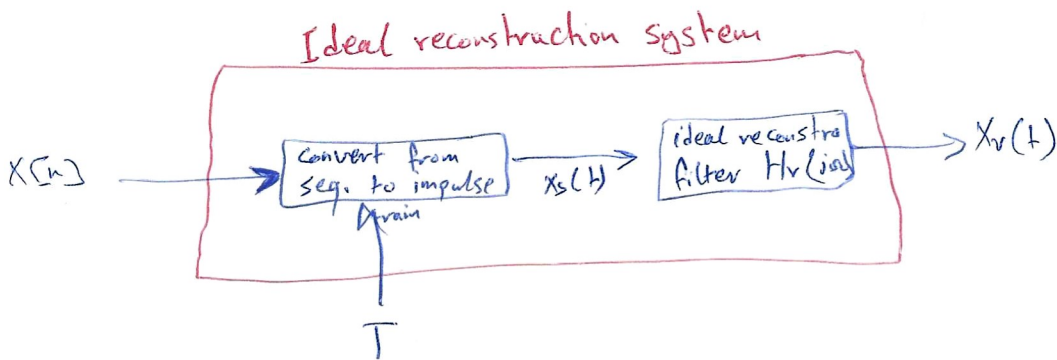 Ideal reconstruction system
X[n]
convert from
seq. to impulse
train
xs(t)
ideal reconstra
filter Hr(jω)
Xr(t)
T